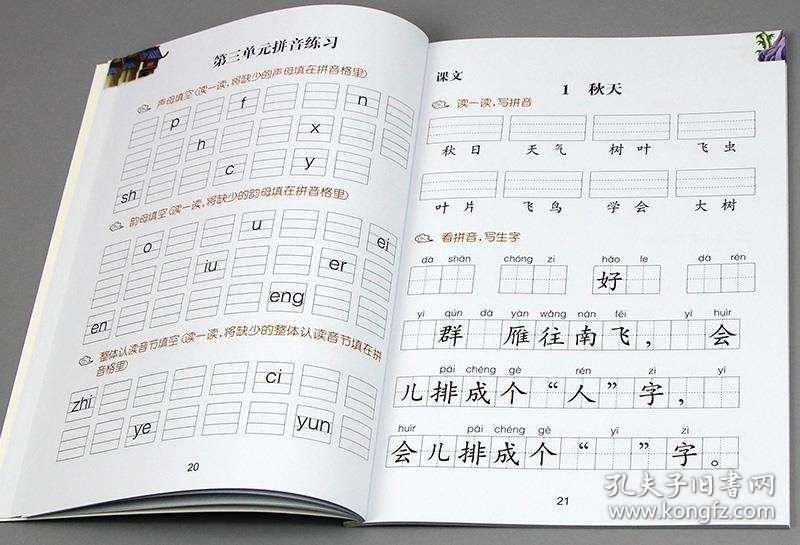 第三单元拼音练习
声母填空(读一读,将缺少的声母填在拼音格里)
p f n
h x
sh c y
韵母填空(读一读,将缺少的韵母填在拼音格里)
o u ei
iu er
en eng
整体认读音节填空(读一读,将缺少的整体认读音节填在拼
音格里)
zhi ci
ye yun
20
课文
1 秋天
读一读,写拼音
秋日 天气 树叶 飞虫
叶片 飞鸟 学会 大树
看拼音,写生字
dà shān chóng zi hǎo le dà rén
好
yì qún dà yàn wǎng nán fēi yí huìr
群 雁往南飞, 会
pái chéng gè rén zì yí
儿排成个“人”字,
huìr pái chéng gè yī zì
会儿排成个“ ”字。
21
孔夫子旧书网
www.kongfz.com